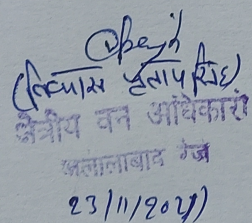 प्रताप सिंह)
क्षेत्रीय वन अधिकारी
जलालाबाद रेंज
23/11/2021